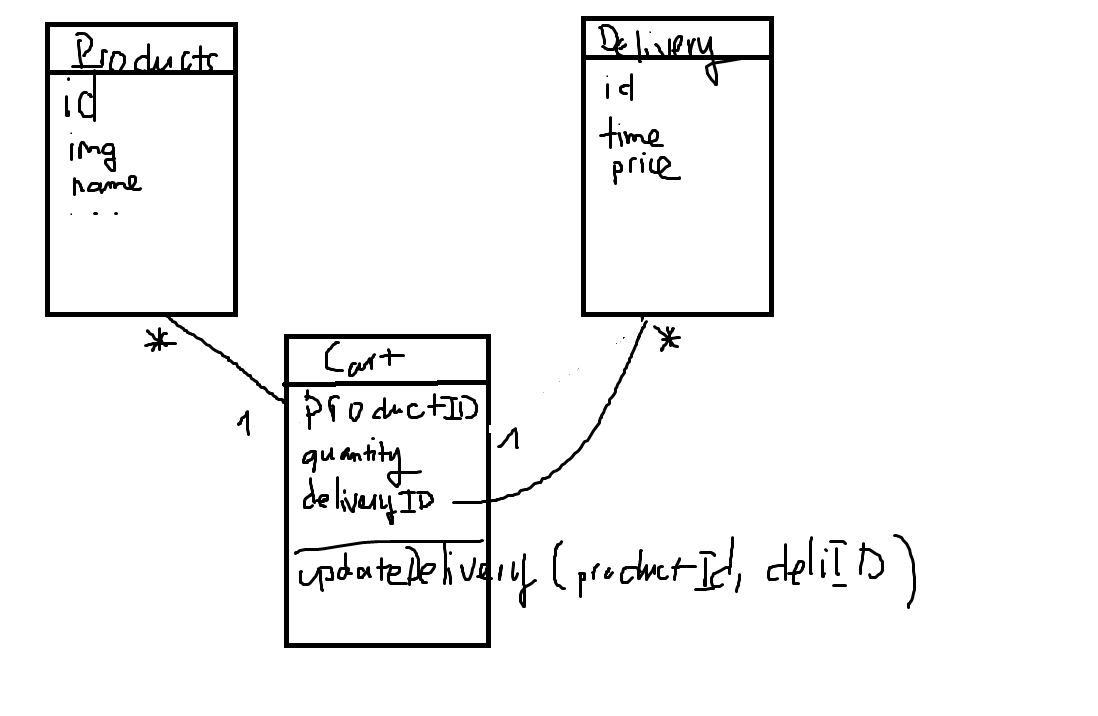 Products
id
img
name
...
Delivery
id
time
price
*
1
Cart
productID
quantity
deliveryID
updateDelivery (productId, deliID)
1
*